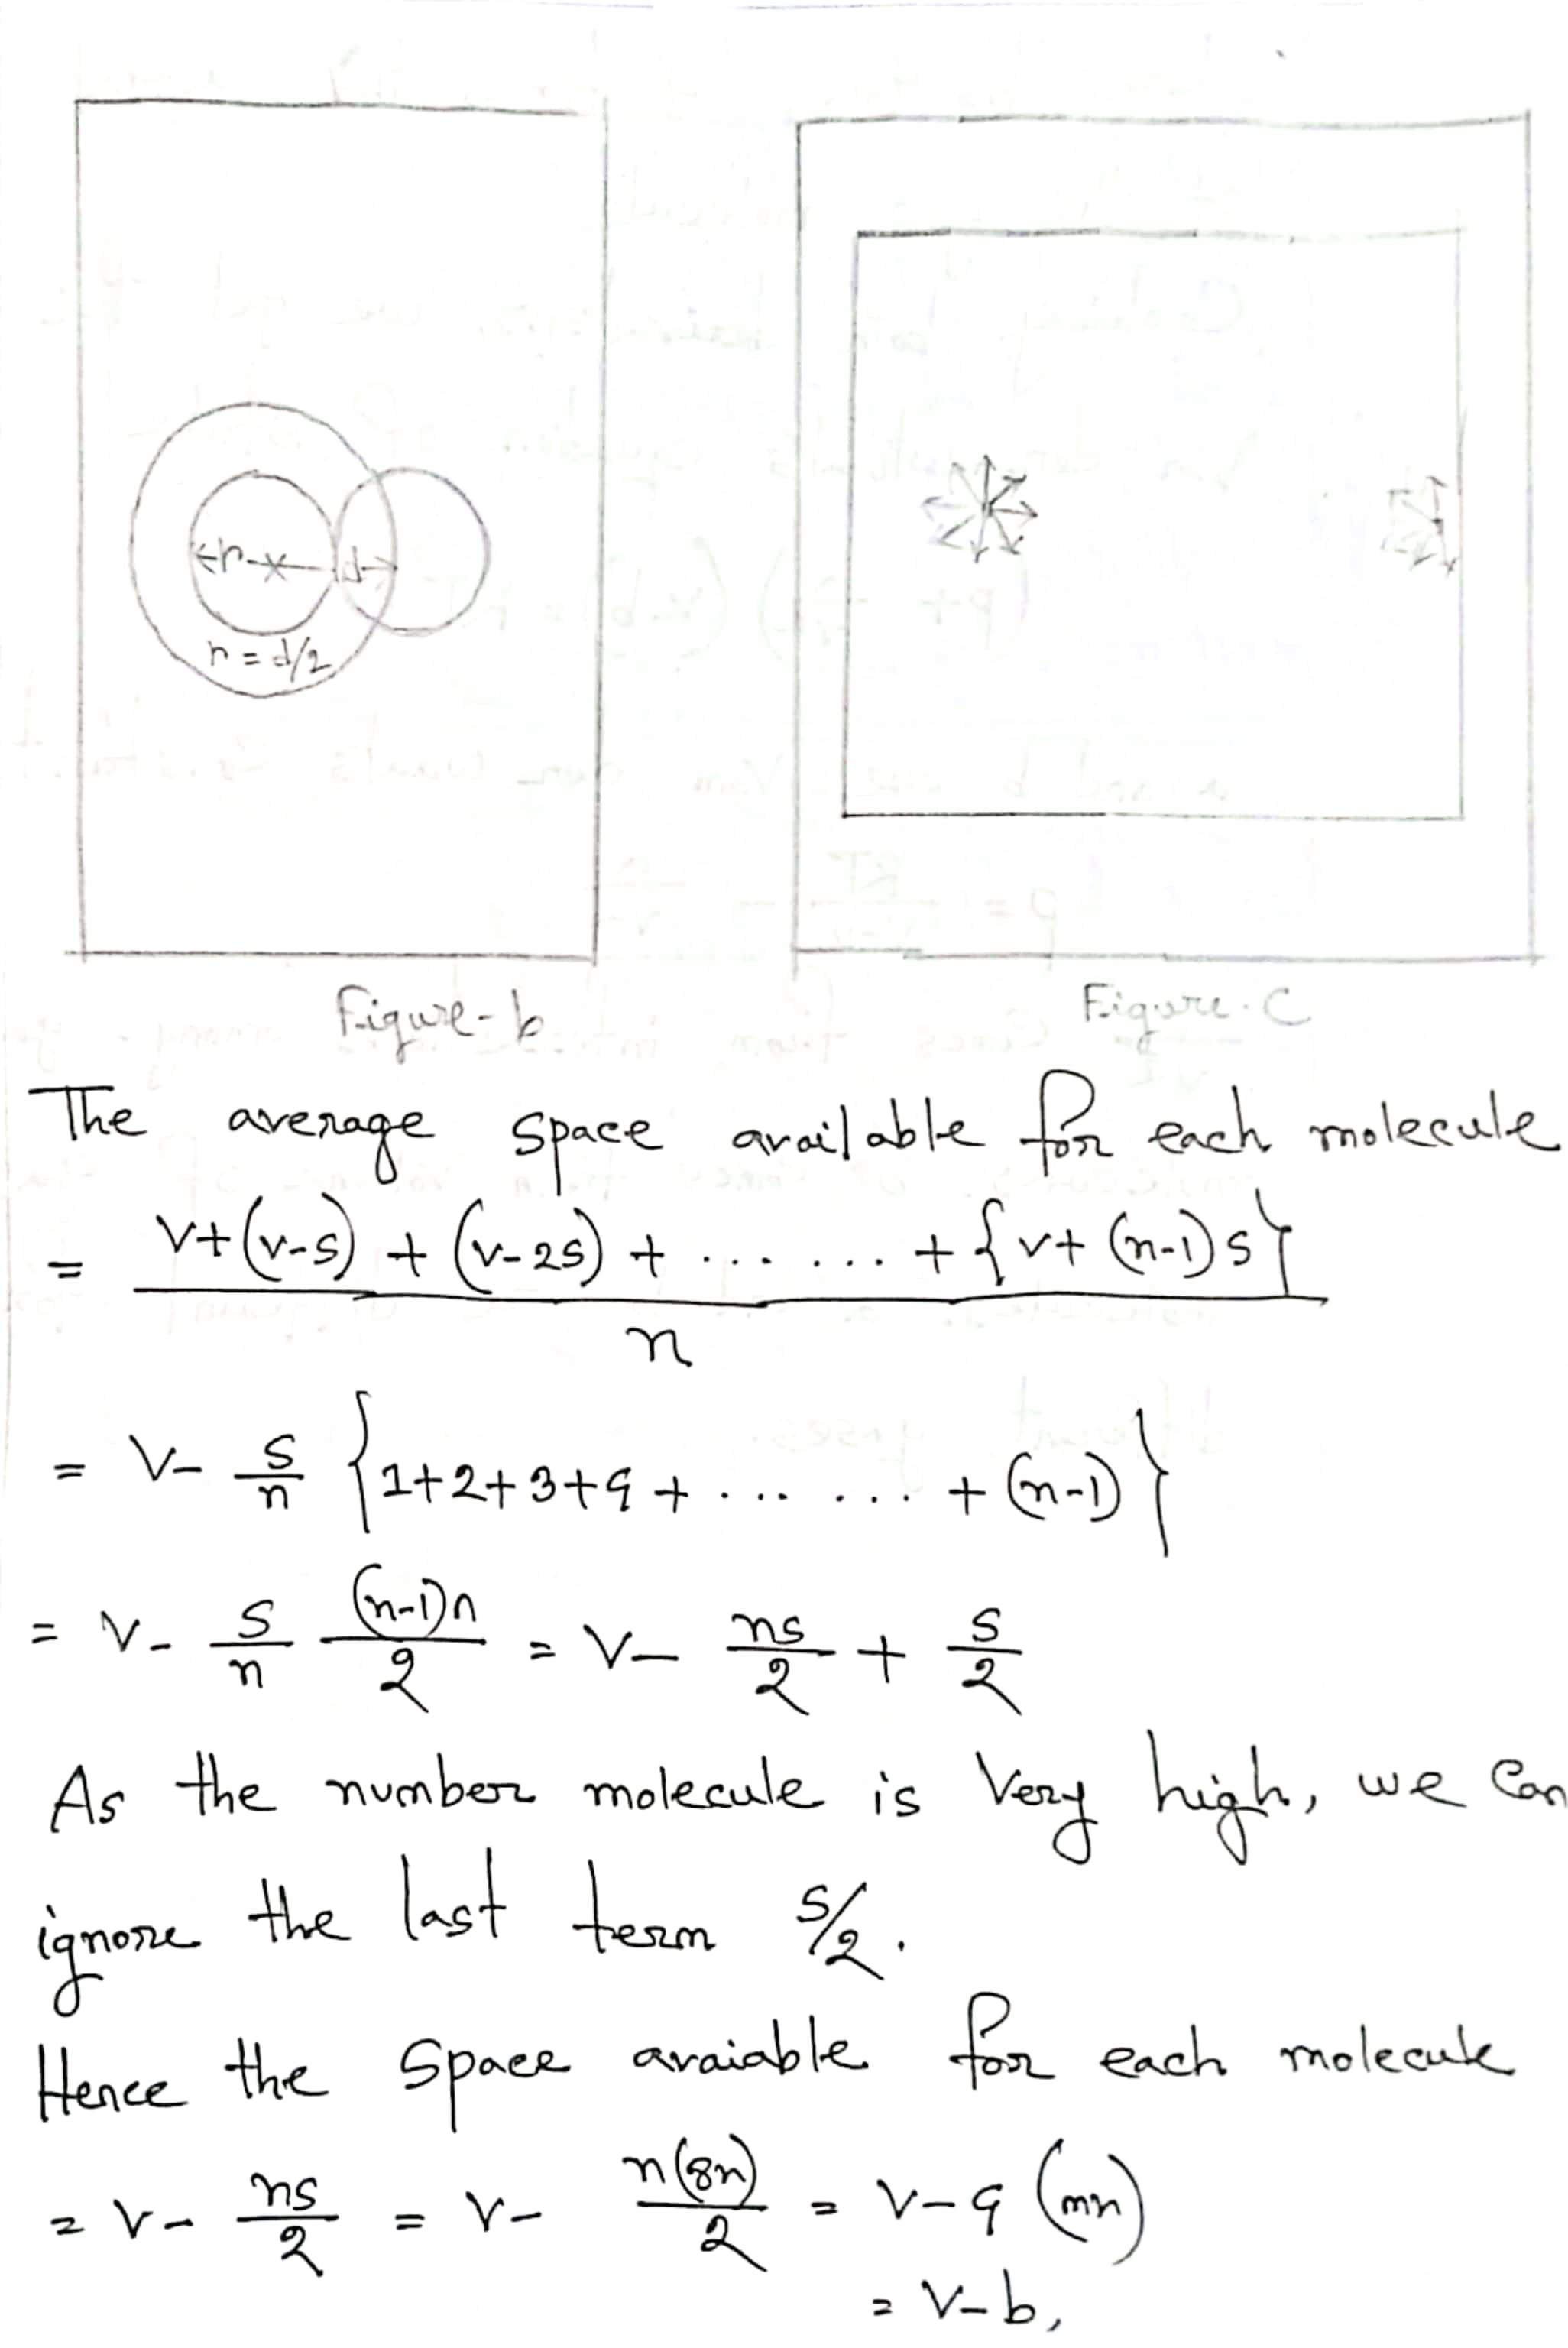 r d
r = d/2
Figure-b
Figure-C
The average space available for each molecule
= V+(V-S) + (V-2S) + ...... + {V+ (n-1)S} / n
= V- S/n {1+2+3+4+ ....... + (n-1)}
= V- S/n (n-1)n/2 = V- nS/2 + S/2
As the number molecule is Very high, we can
ignore the last term S/2.
Hence the Space avaiable for each molecule
= V- nS/2 = V- n(8n)/2 = V-4 (nn)
= V-b,